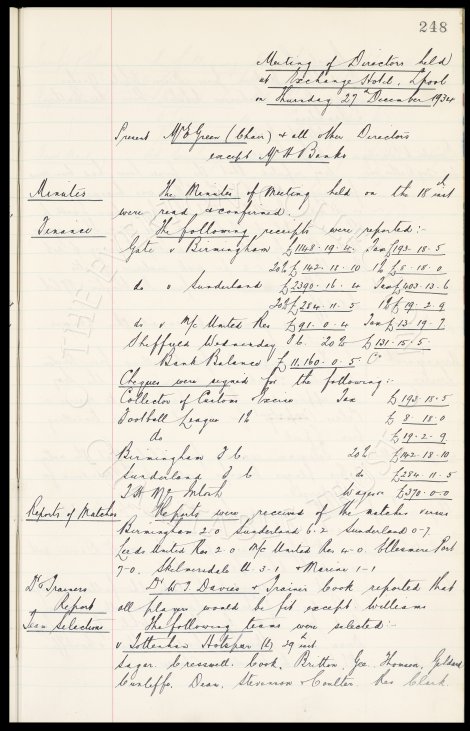 248
Meeting of Directors held
at Exchange Hotel, Lpool
on Thursday 27th December 1934
Present Mr E Green (Chair) & all other Directors
except Mr H Banks
Minutes
The Minutes of Meeting held on the 18th inst
were read & confirmed.
Finance
The following receipts were reported:-
Gate v Birmingham £1148.19.4. Tax £193.18.5
20% £142.18.10 1% £8.18.0
do v Sunderland £2390.16.4 Tax £403.13.6
20% £284.11.5 1% £19.2.9
do v M/c United Res £91.0.4 Tax £13.19.7
Sheffield Wednesday F.C. 20% £131.15.5
Bank Balance £11,160.0.5 Cr
Cheques were signed for the following:-
Collector of Customs Excise Tax £193.18.5
Football League 1% £8.18.0
do £19.2.9
Birmingham F.C. 20% £142.18.10
Sunderland F C do £284.11.5
Wages £370.0.0
Reports of Matches
Reports were received of the matches versus
Birmingham 2.0 Sunderland 6.2 Sunderland 0-7
Leeds United Res 2.0 M/c United Res 4-0. Ellesmere Port
7-0. Skelmersdale U. 3-1 & Marine 1-1
Dr & Trainers
Report
Dr W T Davies & Trainer Cook reported that
all players would be fit except Williams
Team Selections
The following teams were selected:-
v Tottenham Hotspur (L) 29th inst
Sagar. Cresswell. Cook. Britton. Gee. Thomson. Geldard
Cunliffe. Dean. Stevenson & Coulter. Res Clark.